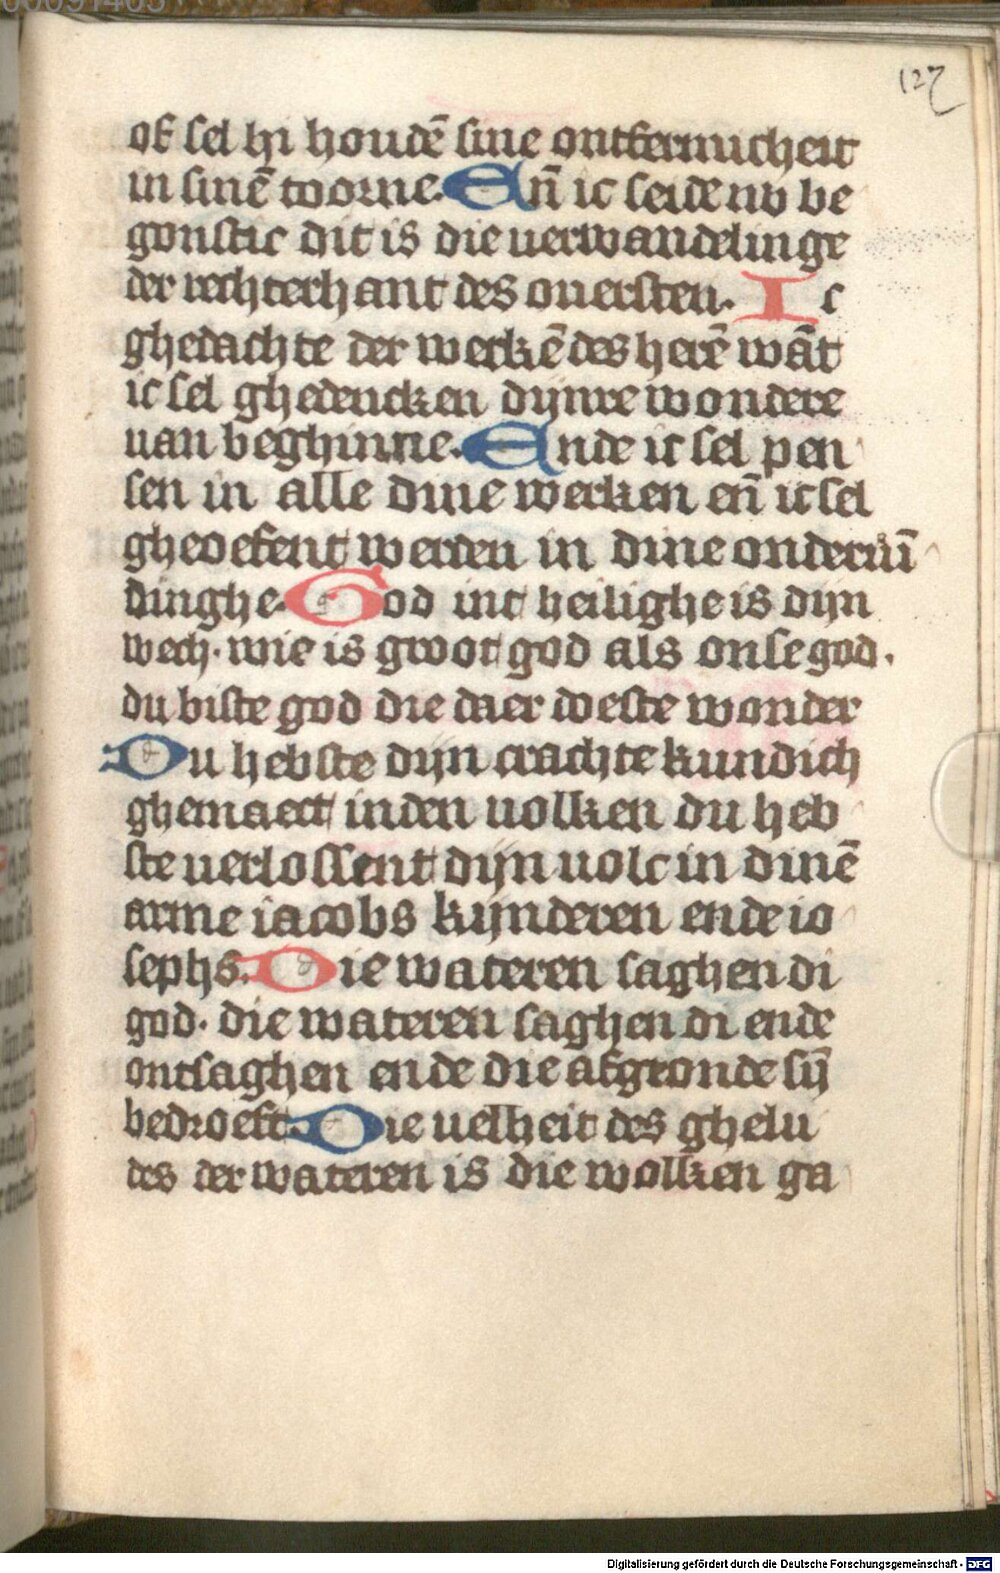 127
of sel hi houdē sine ontfermicheit
in sinē toorne. Eñ ic seide nv be
gonstic dit is die uerwandelinge
der rechterhant des ouersten. Ic
ghedachte der werkē des herē wāt
ic sel ghedencken dijnre wondere
uan beghinne. Ende ic sel pen
sen in alle dine werken eñ ic sel
gheoefent werden in dine onderuī
dinghe. God int heilighe is dijn
wech. wie is groot god als onse god.
du biste god die daer doeste wonder
Du hebste dijn crachte kundich
ghemaect inden uolken du heb
ste uerlossent dijn uolc in dinē
arme iacobs kijnderen ende io
sephs. Die wateren saghen di
god. die wateren saghen di ende
ontsaghen ende die afgronde sijn̄
bedroeft. Die uelheit des ghelu
des der wateren is die wolken ga
Digitalisierung gefördert durch die Deutsche Forschungsgemeinschaft - DFG